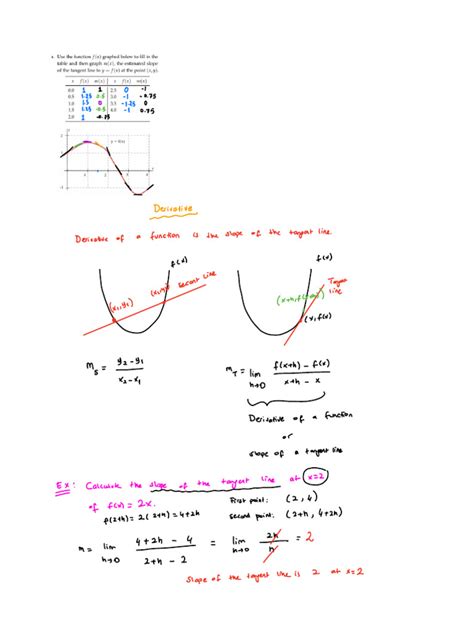 x. Use the function f(x) graphed below to fill in the
table and then graph m(x), the estimated slope
of the tangent line to y = f(x) at the point (x, y).
x f(x) m(x) x f(x) m(x)
0.0 1 1 2.5 0 -1
0.5 1.25 0.5 3.0 -1 -0.75
1.0 1.5 0 3.5 -1.25 0
1.5 1.25 -0.5 4.0 -1 0.75
2.0 1 -0.75
y = f(x)
Derivative
Derivative of a function is the slope of the tangent line.
f(x) f(x)
(x₂,y₂) Secant Line
Tangent line
(x+h, f(x+h))
(x₁,y₁)
(x, f(x))
mₛ = y₂-y₁ / x₂-x₁
m_T = lim h→0 f(x+h) - f(x) / x+h - x
Derivative of a function
or
slope of a tangent line
Ex: Calculate the slope of the tangent line at x=2
of f(x) = 2x.
First point: (2, 4)
f(2+h) = 2(2+h) = 4+2h
Second point: (2+h, 4+2h)
m = lim h→0 4+2h - 4 / 2+h - 2 = lim h→0 2h / h = 2
Slope of the tangent line is 2 at x=2